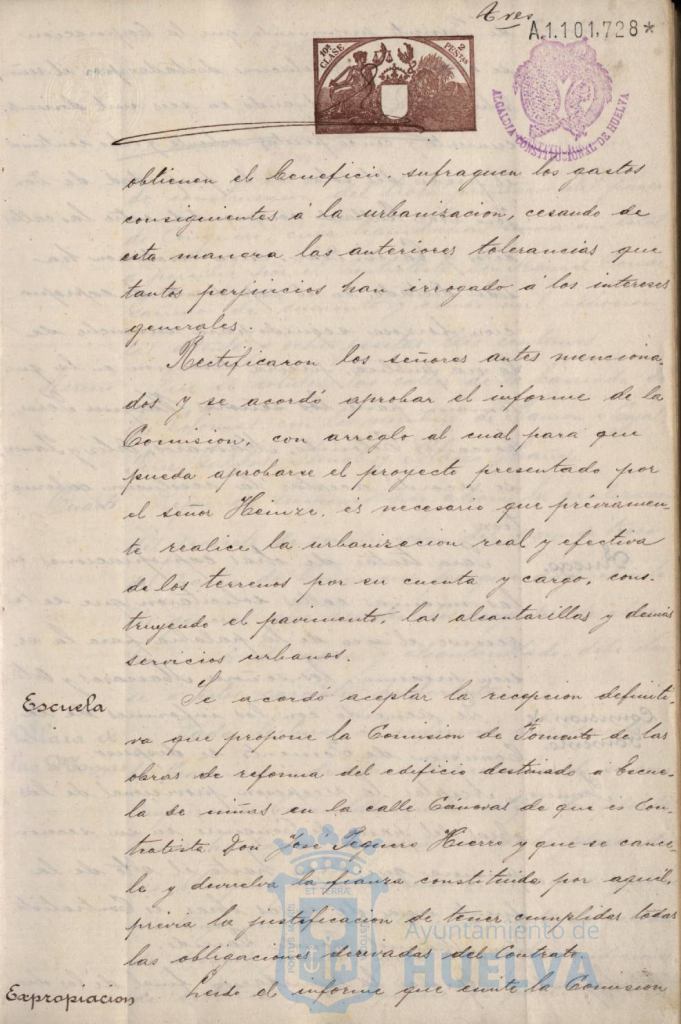 Tres
A.1.101.728*
10ª CLASE
2 PESETAS
ALCALDIA CONSTITUCIONAL DE HUELVA
obtienen el beneficio, sufraguen los gastos
consiguientes á la urbanizacion, cesando de
esta manera las anteriores tolerancias que
tantos perjuicios han irrogado á los intereses
generales.
Rectificaron los señores antes menciona-
dos y se acordó aprobar el informe de la
Comision, con arreglo al cual para que
pueda aprobarse el proyecto presentado por
el señor Heinze, és necesario que préviamen-
te realice la urbanizacion real y efectiva
de los terrenos por su cuenta y cargo, cons-
truyendo el pavimento, las alcantarillas y demás
servicios urbanos.
Escuela
Se acordó aceptar la recepcion definiti-
va que propone la Comision de Fomento de las
obras de reforma del edificio destinado á Escue-
la de niñas en la calle Cánovas de que és Con-
tratista Don José Hierro y que se cance-
le y devuelva la fianza constituida por aquél,
prévia la justificacion de tener cumplidas todas
las obligaciones derivadas del Contrato.
Expropiacion
Leido el informe que emite la Comision
Ayuntamiento de
HUELVA